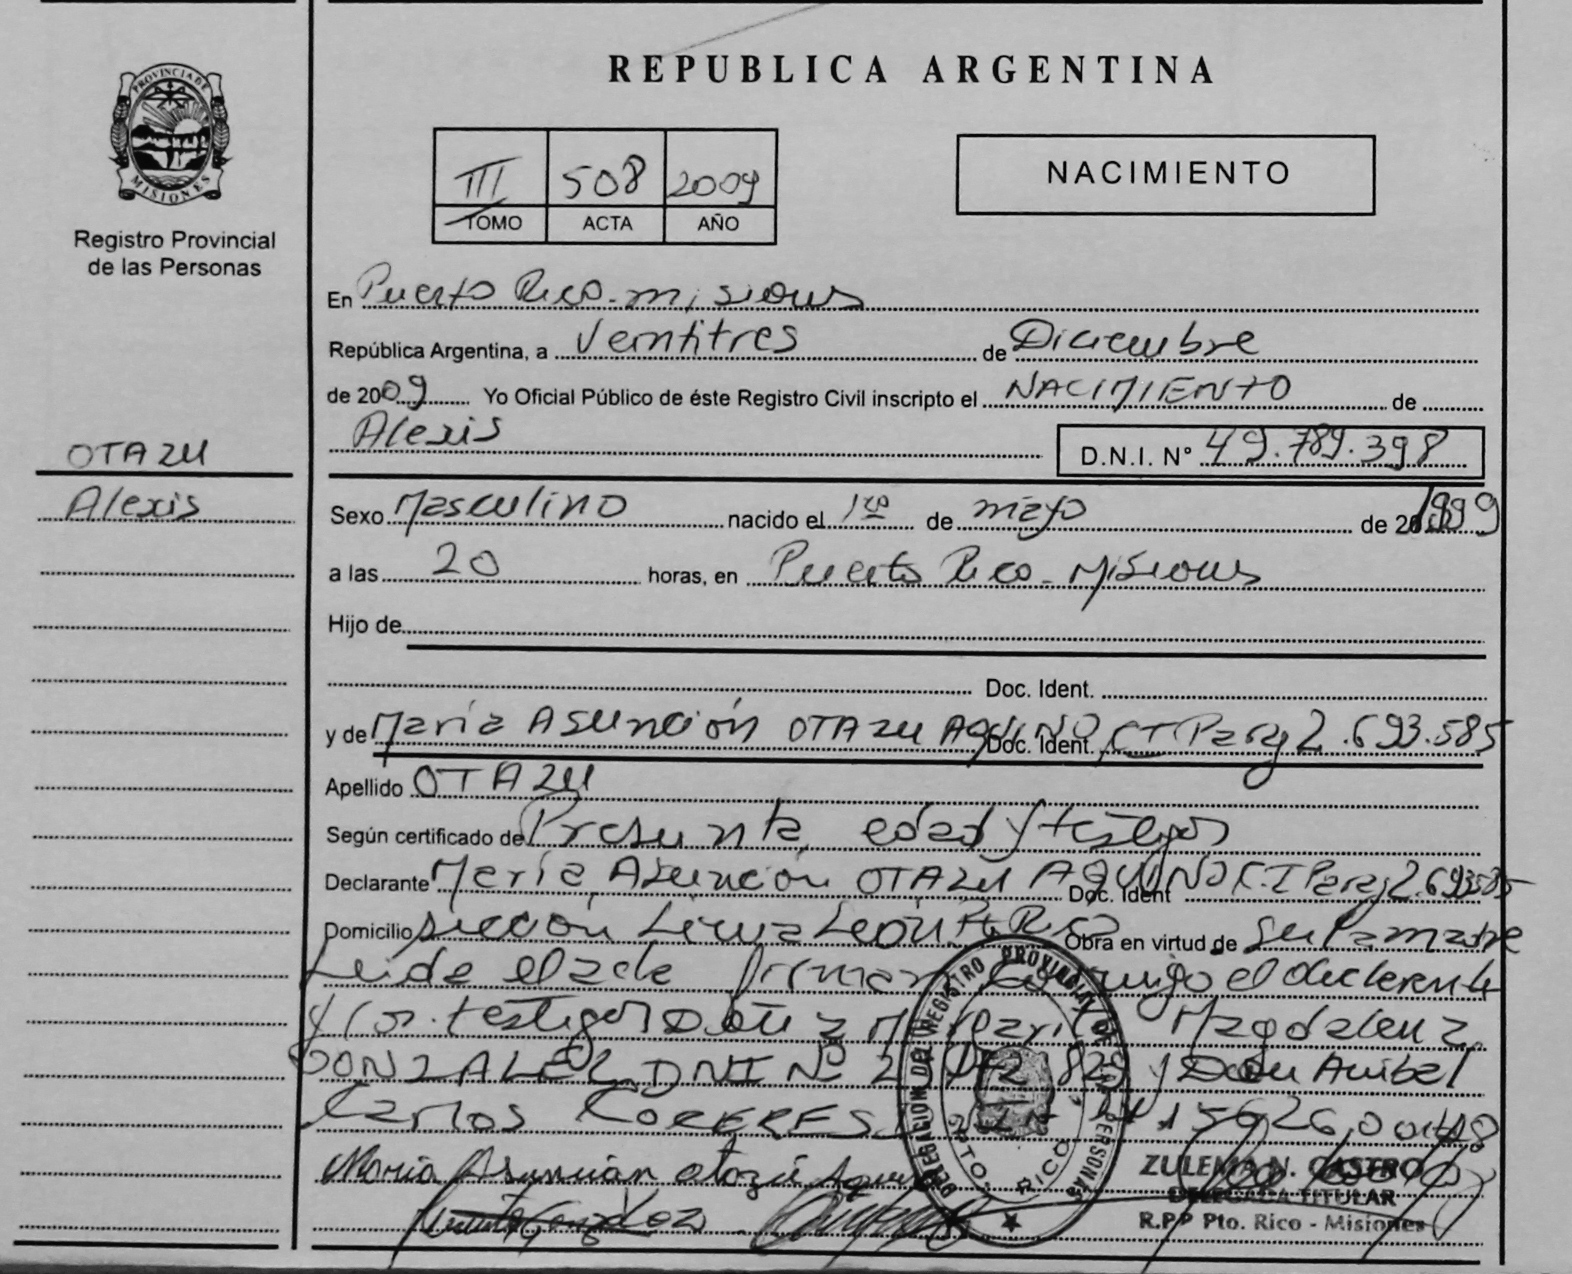 PROVINCIA DE
MISIONES
Registro Provincial
de las Personas
OTAZU
Alexis
REPUBLICA ARGENTINA
III 508 2009
TOMO ACTA AÑO
NACIMIENTO
En Puerto Rico - Misiones
República Argentina, a Veintitres de Diciembre
de 2009 Yo Oficial Público de éste Registro Civil inscripto el NACIMIENTO de
Alexis D.N.I. N° 49.789.398
Sexo Masculino nacido el 1ro de mayo de 1999
a las 20 horas, en Puerto Rico - Misiones
Hijo de
Doc. Ident.
y de María Asunción OTAZU AQUINO Doc. Ident. CI Parag 2.693.585
Apellido OTAZU
Según certificado de Presunta edad y testigos
Declarante María Asunción OTAZU AQUINO Doc. Ident C.I Parag 2.693585
Domicilio sección Lima León Pto Rico Obra en virtud de ser la madre
Leida el acta firman conmigo el declarante
y los testigos Doña Margarita Magdalena
GONZALEZ DNI N° y Don Anibal
Carlos
María Asunción Otazú Aquino
DELEGACION DEL REGISTRO PROVINCIAL DE LAS PERSONAS
PTO. RICO
ZULEMA N. CASTRO
DELEGADA TITULAR
R.P.P Pto. Rico - Misiones